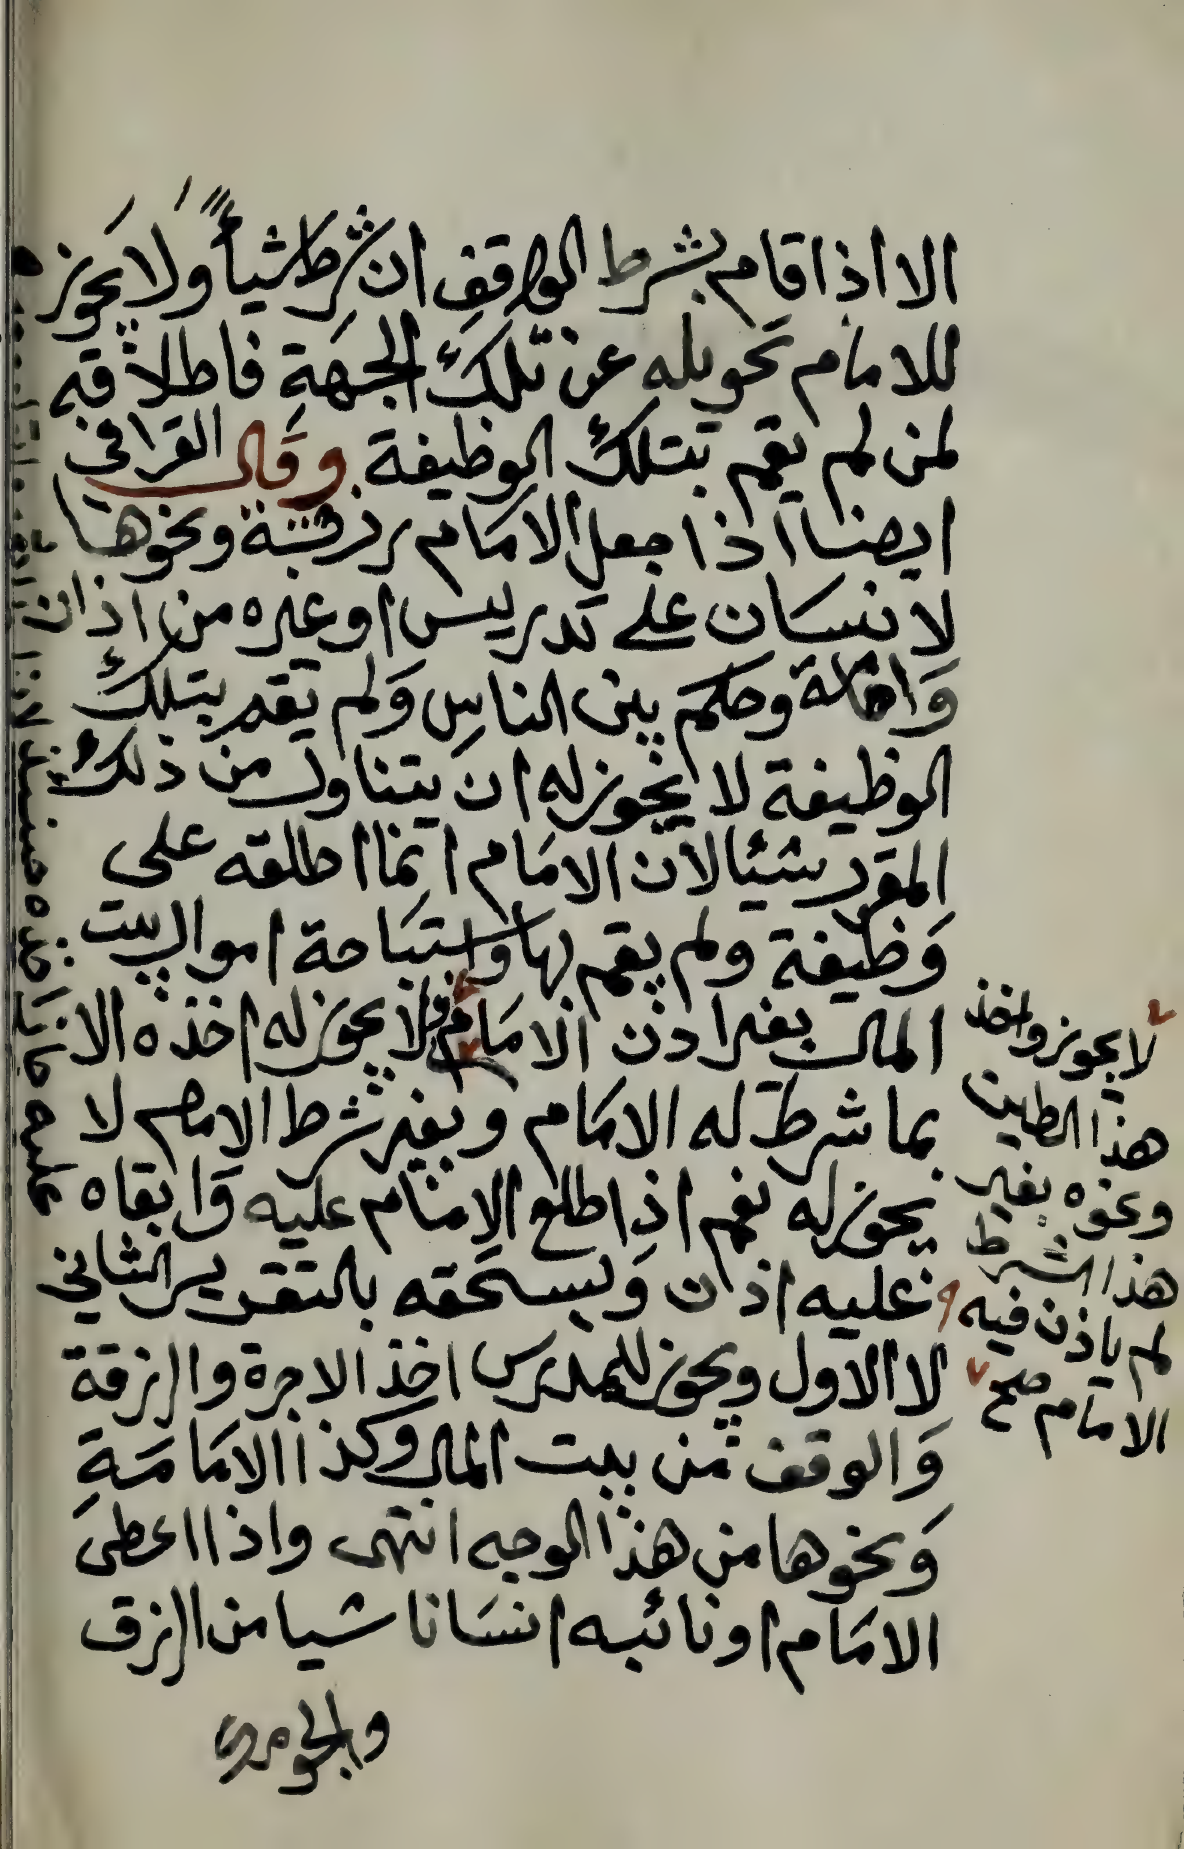 الا اذا قام بشرط الواقف ان شرط شيأ ولا يجوز
للامام تحويله عن تلك الجهة فاطلاقه
لمن لم يقم بتلك الوظيفة وقال القرافي
ايضا اذا جعل الامام رزقة ونحوها
لانسان على تدريس او غيره من اذان
وامامة وحكم بين الناس ولم يقم بتلك
الوظيفة لا يجوز له ان يتناول من ذلك
المقرر شيئا لان الامام انما اطلقه على
وظيفة ولم يقم بها واستباحة اموال بيت
المال بغير اذن الامام لا يجوز له اخذه الا
بما شرط له الامام وبغير شرط الامام لا
يجوز له نعم اذا طلع الامام عليه وابقاه
عليه اذن ويستحقه بالتقرير الثاني
لا الاول ويجوز للمدرس اخذ الاجرة والرزقة
والوقف من بيت المال وكذا الامامة
ونحوها من هذا الوجه انتهى واذا اعطى
الامام او نائبه انسانا شيا من الرزق
لا يجوز واخذ
هذا الطين
ونحوه بغير
هذا الشرط
لم ياذن فيه
الامام صح